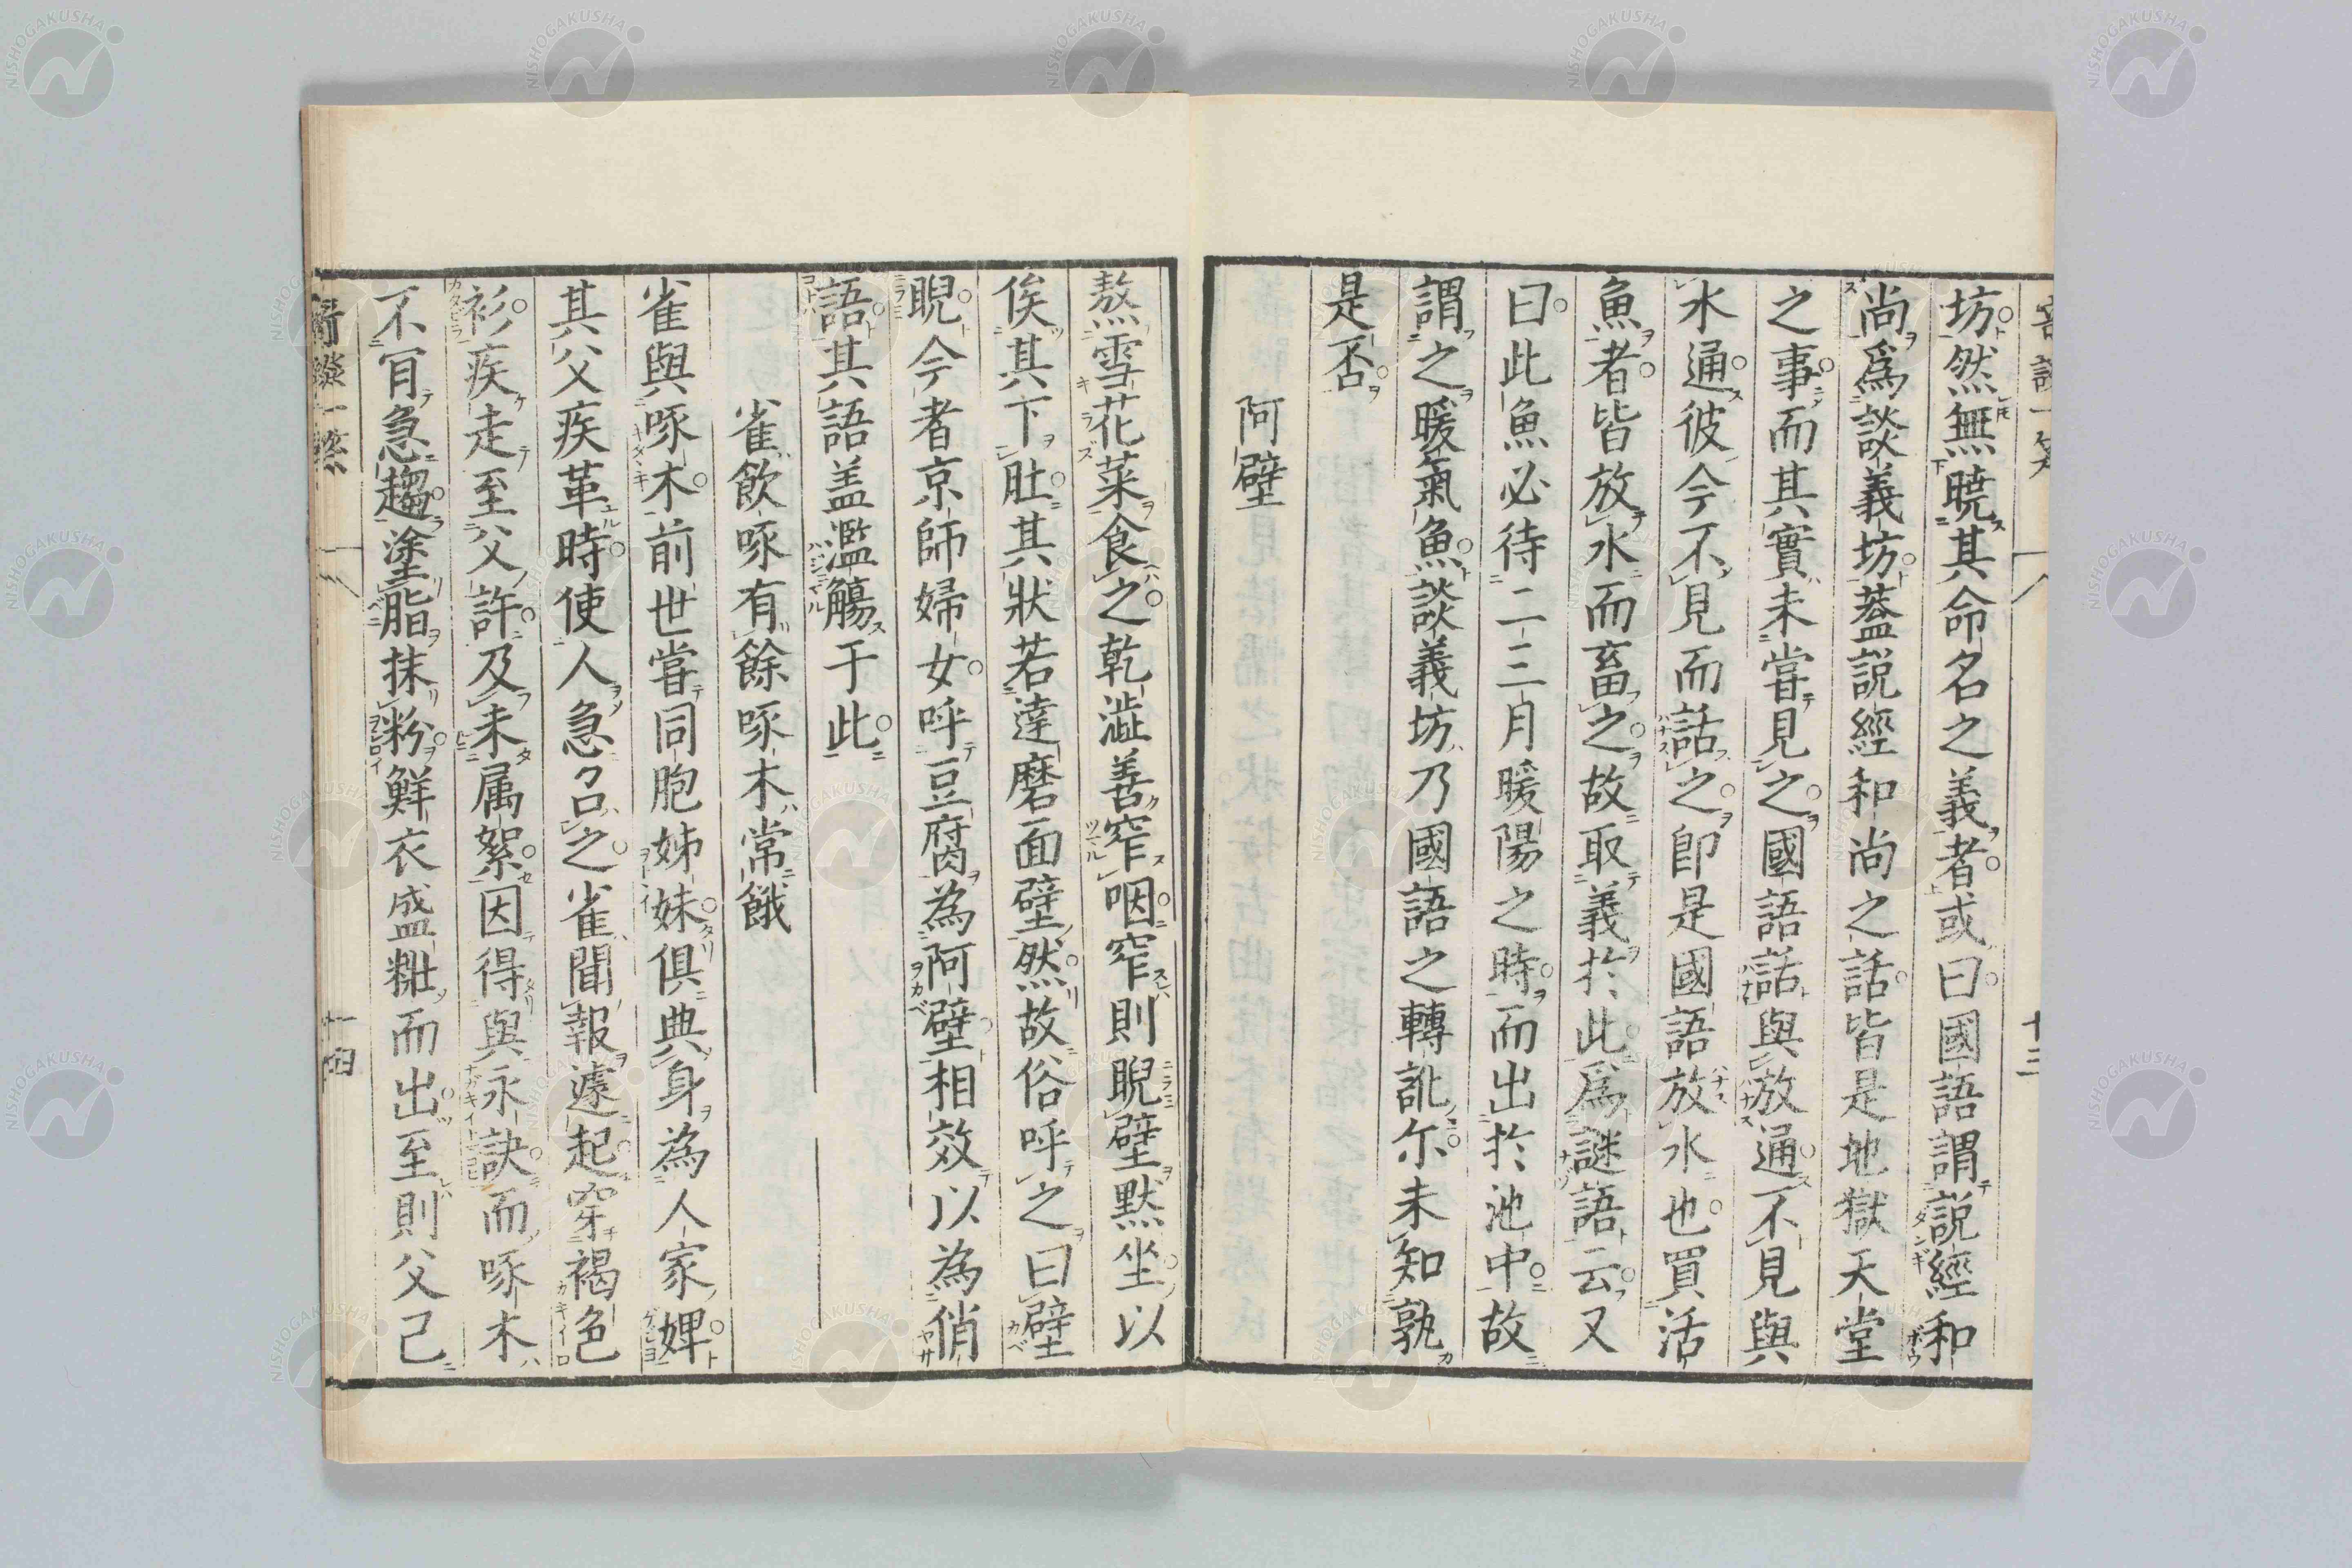 坊然無曉其命名之義者或曰國語謂説經和
尚爲談義坊蓋説經和尚之話皆是地獄天堂
之事而其實未嘗見之國語話與放通不見與
水通彼今不見而話之即是國語放水也買活
魚者皆放水而畜之故取義於此爲謎語云又
曰此魚必待二三月暖陽之時而出於池中故
謂之暖氣魚談義坊乃國語之轉訛尓未知孰
是否
阿壁
熬雪花菜食之乾澁善窄咽窄則睨壁黙坐以
俟其下肚其狀若達磨面壁然故俗呼之曰壁
睨今者京師婦女呼豆腐為阿壁相效以為俏
語其語盖濫觴于此
雀飲啄有餘啄木常餓
雀與啄木前世嘗同胞姊妹俱典身為人家婢
其父疾革時使人急召之雀聞報遽起穿褐色
衫疾走至父許及未属絮因得與永訣而啄木
不肎急趨塗脂抹粉鮮衣盛粧而出至則父已
NISHOGAKUSHA